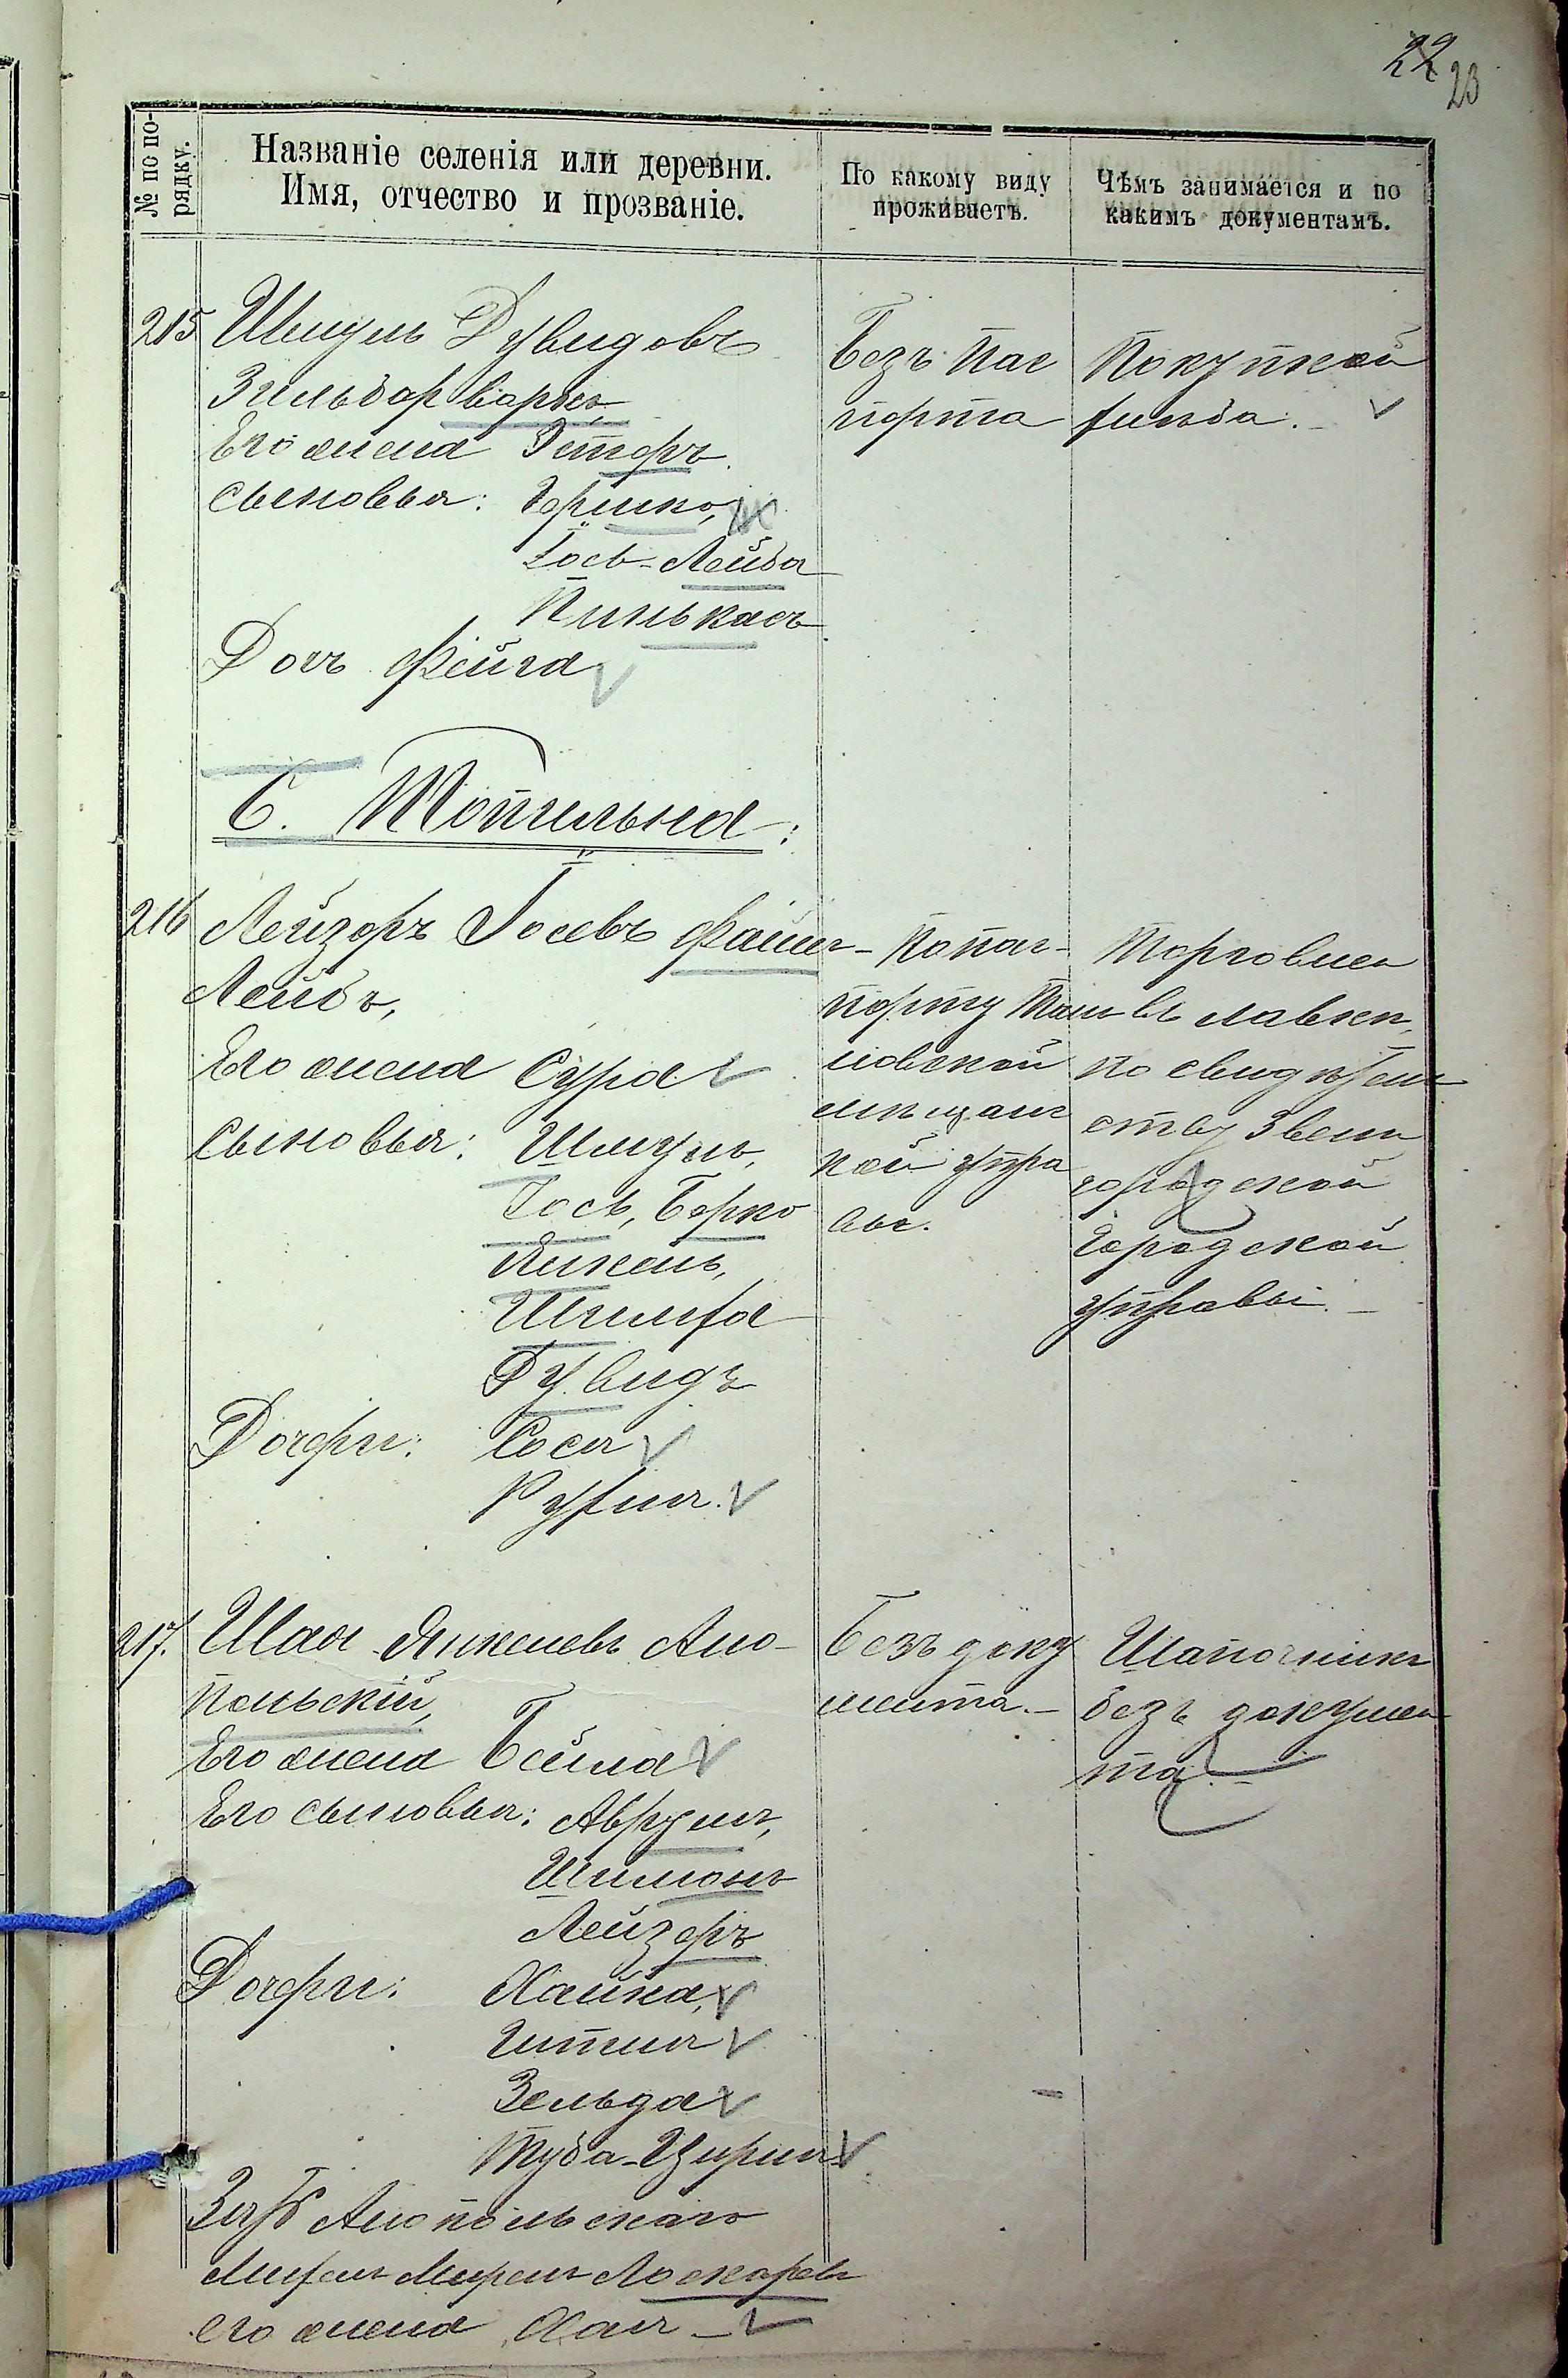 22 23
№ по по-
рядку.
Названіе селенія или деревни.
Имя, отчество и прозваніе.
По какому виду
проживаетъ.
Чѣмъ занимается и по
какимъ документамъ.
215 Шмуль Дувидовъ
Зильберваргъ
Его жена Эстеръ.
Сыновья: Гершко,
Іось-Лейба
Пинькасъ
Дочь Фейга
Безъ пас
порта
Покупкой
хлѣба.
С. Топильна:
216 Лейзоръ Іосевъ
Лейбъ,
Его жена Сура
Сыновья: Шмуль,
Іось, Берко
Янкель,
Шимха
Дувидъ
Дочери: Сося
Рухля.
По пас-
порту
мѣщанс
кой упра
вы.
Торговлей
въ лавкѣ,
по свидѣтель
ству Звени
городской
Городской
управы.
217. Шая Янкелевъ Ано-
польскій,
Его жена Бейла
Его сыновья: Аврумъ,
Шимонъ
Лейзеръ
Дочери: Хайка,
Итля
Зельда
Туба-Цирля
Зять Анопольскаго
его жена Хая
Безъ доку
мента.
Шапочникъ
безъ докумен
та.